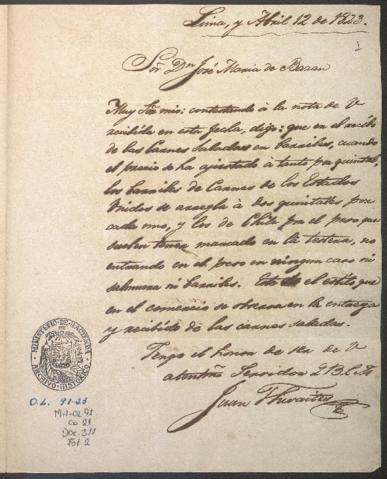 Lima, y Abril 12 de 1833.
1
Sor. Dn. José Maria de Bazan
Muy Sor. mio: contestando á la nota de V
recibida en esta fecha, digo: que en el recibo
de las Carnes Saladas en barriles, cuando
el precio se ha ajustado á tanto pr. quintal,
los barriles de Carnes de los Estados
Unidos se arregla á dos quintales por
cada uno, y los de Chile pr. el peso que
suelen tener marcado en la testera, no
entrando en el peso en ningun caso ni
salmuera ni barriles. Este es el estilo que
en el comercio se observa en la entrega
y recibido de las carnes saladas.
Tengo el honor de ser de V
atento Servidor Q.B.S.M
Juan Thwaites
MINISTERIO DE HACIENDA
ARCHIVO HISTORICO
O.L. 91-21
MH-OL 91
Ca 21
Doc 311
Fol. 2